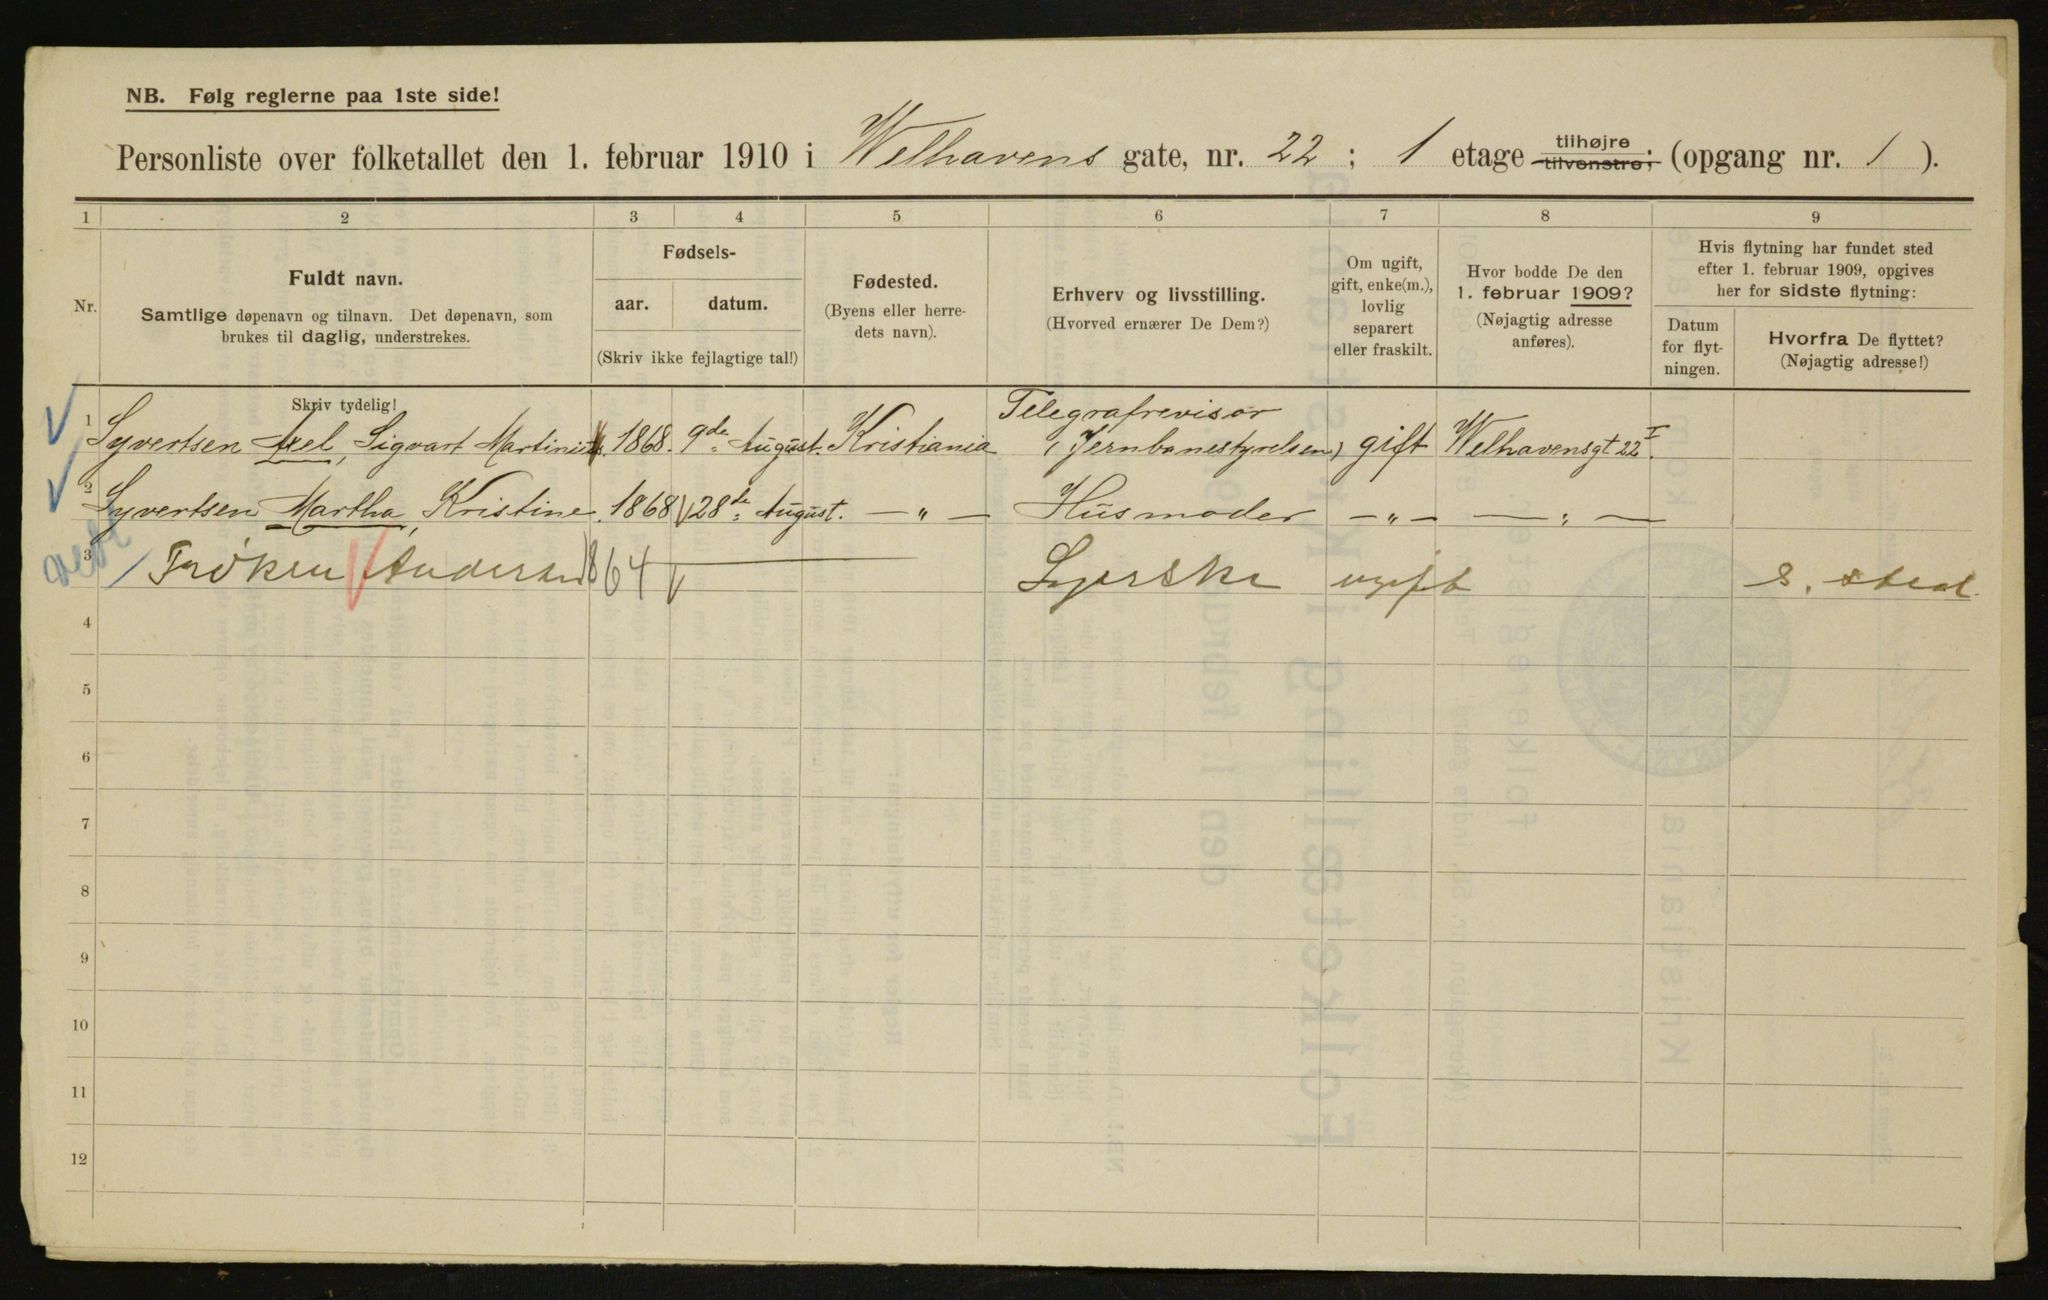 NB. Følg reglerne paa 1ste side!
Personliste over folketallet den 1. februar 1910 i Welhavens gate, nr. 22 ; 1 etage tilhøjre tilvenstre; (opgang nr. 1 ).
1 2 3 4 5 6 7 8 9
Nr.
Fuldt navn.
Samtlige døpenavn og tilnavn. Det døpenavn, som
brukes til daglig, understrekes.
Skriv tydelig!
Fødsels-
aar. datum.
(Skriv ikke fejlagtige tal!)
Fødested.
(Byens eller herre-
dets navn).
Erhverv og livsstilling.
(Hvorved ernærer De Dem?)
Om ugift,
gift, enke(m.),
lovlig
separert
eller fraskilt.
Hvor bodde De den
1. februar 1909?
(Nøjagtig adresse
anføres).
Hvis flytning har fundet sted
efter 1. februar 1909, opgives
her for sidste flytning:
Datum
for flyt-
ningen.
Hvorfra De flyttet?
(Nøjagtig adresse!)
Telegrafrevisor
1 Syvertsen Axel, Sigvart Martinius. 1868. 9de August. Kristiania (Jernbanestyrelsen) gift Welhavensgt 22 I.
2 Syvertsen Martha, Kristine. 1868 28de August. — " — Husmoder — " — — " —
3 Frøken Andersen 864 Syerske ugift s. sted.
4
5
6
7
8
9
10
11
12